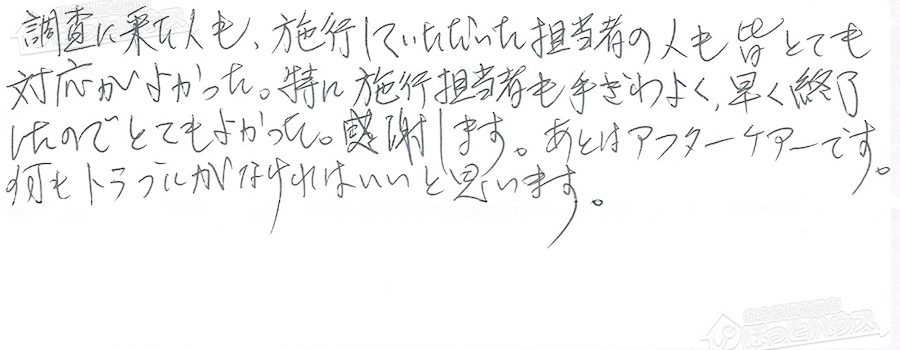 調査に来た人も、施行していただいた担当者の人も皆とても
対応がよかった。特に施行担当者も手ぎわよく、早く終了
したのでとてもよかった。感謝します。あとはアフターケアーです。
何もトラブルがなければいいと思います。
ほっとハウス